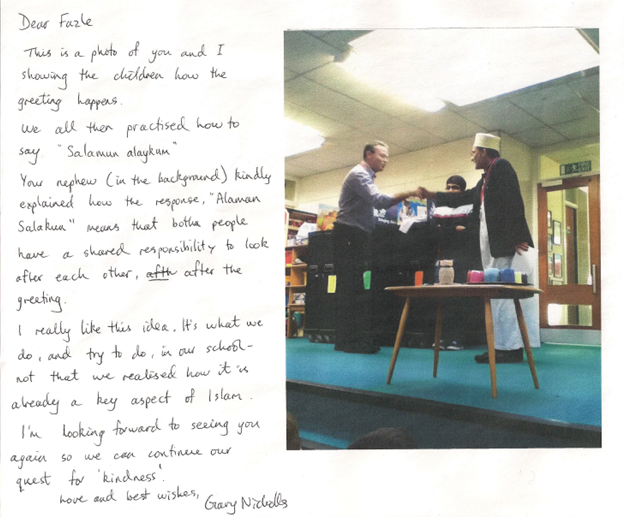 Dear Fazle
This is a photo of you and I
showing the children how the
greeting happens.
We all then practised how to
say "Salamun alaykum"
Your nephew (in the background) kindly
explained how the response, "Alaman
Salakun" means that bothe people
have a shared responsibility to look
after each other, afth after the
greeting.
I really like this idea. It's what we
do, and try to do, in our school-
not that we realised how it is
already a key aspect of Islam.
I'm looking forward to seeing you
again so we can continue our
quest for 'kindness'.
Love and best wishes,
Gary Nicholls